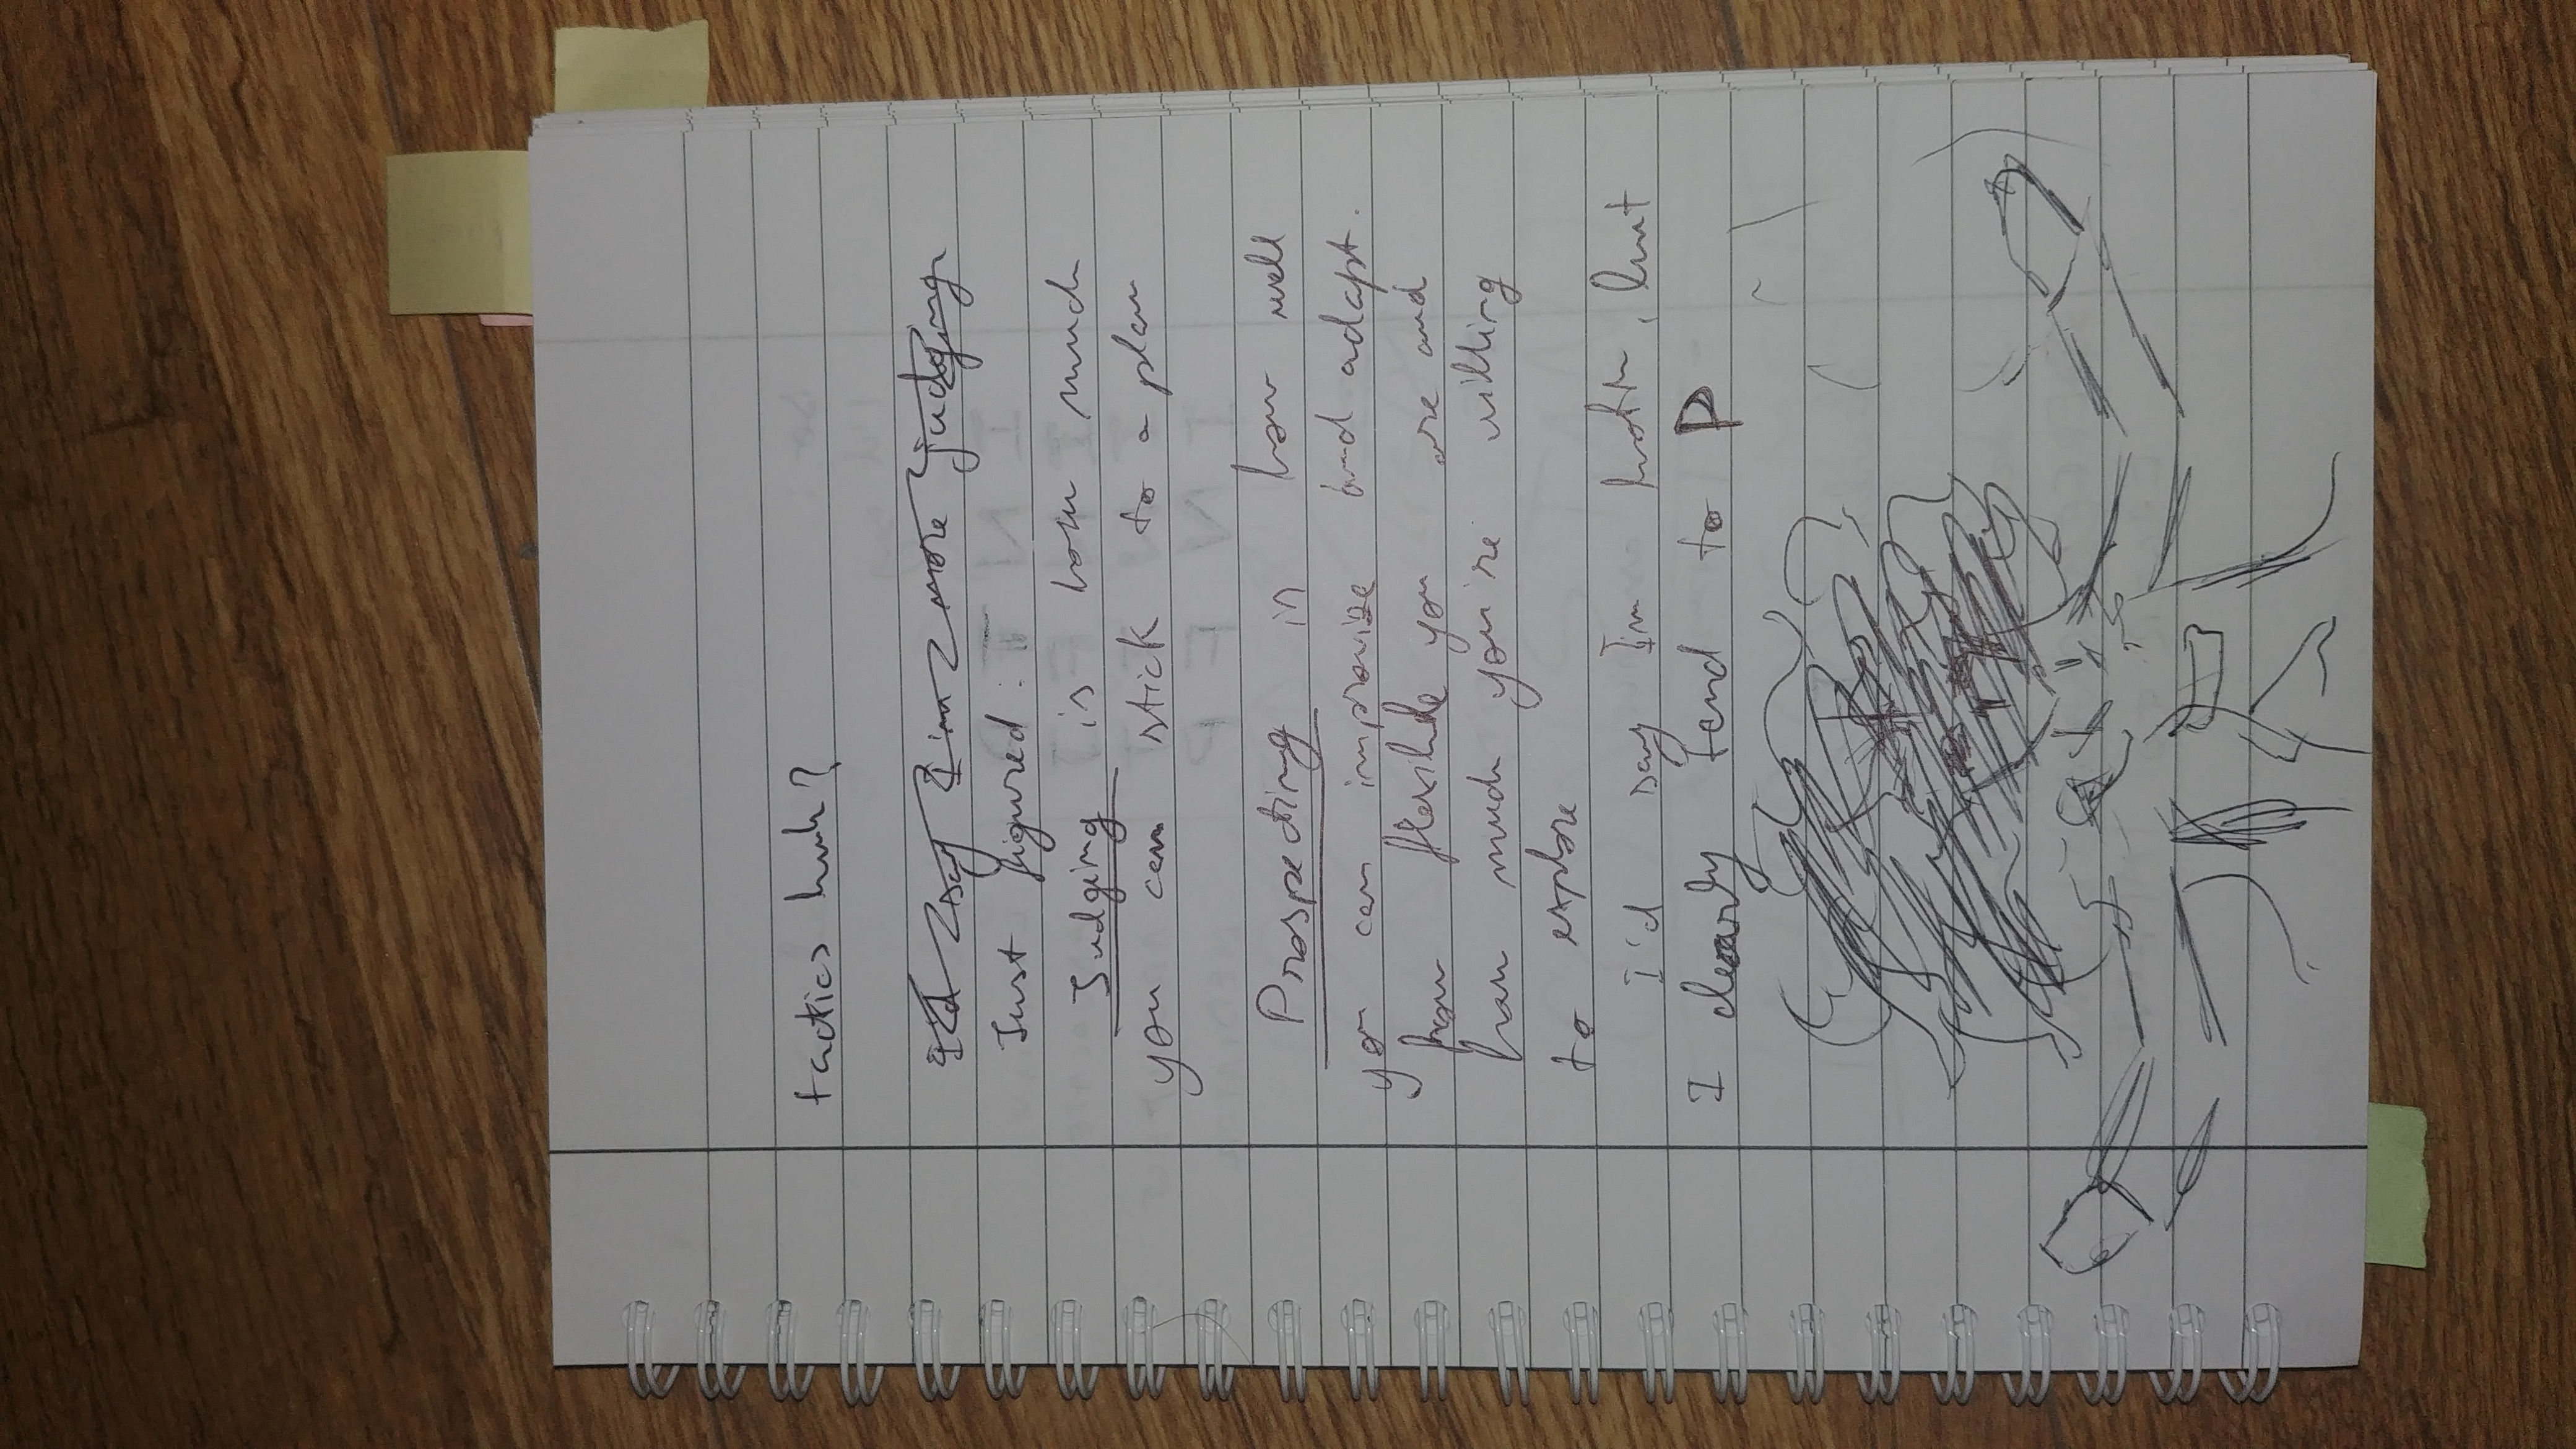 tactics huh?
I'd say I'm more judging
Just figured:
Judging is how much
you can stick to a plan
Prospecting is how well
you can improvize and adapt.
how flexible you are and
how much you're willing
to explore
I'd say I'm both, but
I clearly tend to P